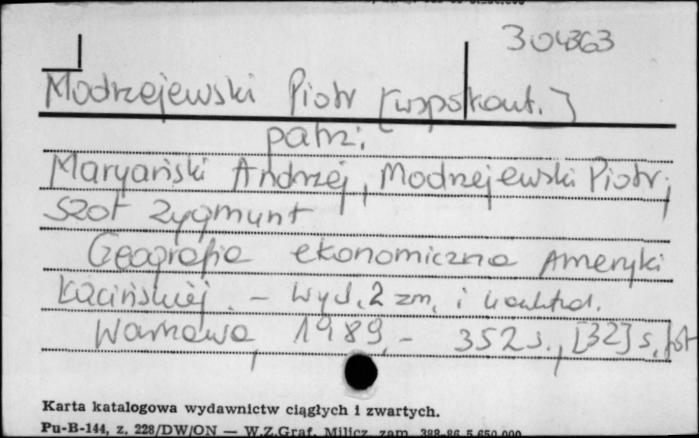 304363
Modrzejewski Piotr [współaut.]
patrz:
Maryański Andrzej, Modrzejewski Piotr,
Szot Zygmunt
Geografia ekonomiczna Ameryki
Łacińskiej. - Wyd. 2 zm. i uaktual.
Warszawa, 1989. - 352 s., [32] s. fot
Karta katalogowa wydawnictw ciągłych i zwartych.
Pu-B-144, z. 228/DW/ON — W.Z.Graf. Milicz, zam. 388-86 5.650.000